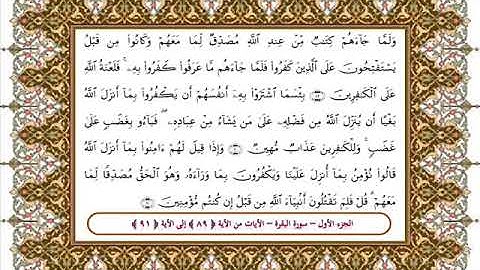 وَلَمَّا جَآءَهُمْ كِتَٰبٌ مِّنْ عِندِ ٱللَّهِ مُصَدِّقٌ لِّمَا مَعَهُمْ وَكَانُوا۟ مِن قَبْلُ
يَسْتَفْتِحُونَ عَلَى ٱلَّذِينَ كَفَرُوا۟ فَلَمَّا جَآءَهُم مَّا عَرَفُوا۟ كَفَرُوا۟ بِهِۦ ۚ فَلَعْنَةُ ٱللَّهِ
عَلَى ٱلْكَٰفِرِينَ ﴿٨٩﴾ بِئْسَمَا ٱشْتَرَوْا۟ بِهِۦٓ أَنفُسَهُمْ أَن يَكْفُرُوا۟ بِمَآ أَنزَلَ ٱللَّهُ
بَغْيًا أَن يُنَزِّلَ ٱللَّهُ مِن فَضْلِهِۦ عَلَىٰ مَن يَشَآءُ مِنْ عِبَادِهِۦ ۖ فَبَآءُو بِغَضَبٍ عَلَىٰ
غَضَبٍ ۚ وَلِلْكَٰفِرِينَ عَذَابٌ مُّهِينٌ ﴿٩٠﴾ وَإِذَا قِيلَ لَهُمْ ءَامِنُوا۟ بِمَآ أَنزَلَ ٱللَّهُ
قَالُوا۟ نُؤْمِنُ بِمَآ أُنزِلَ عَلَيْنَا وَيَكْفُرُونَ بِمَا وَرَآءَهُۥ وَهُوَ ٱلْحَقُّ مُصَدِّقًا لِّمَا
مَعَهُمْ ۗ قُلْ فَلِمَ تَقْتُلُونَ أَنۢبِيَآءَ ٱللَّهِ مِن قَبْلُ إِن كُنتُم مُّؤْمِنِينَ ﴿٩١﴾
الجزء الأول – سورة البقرة – الآيات من الآية ﴿٨٩﴾ إلى الآية ﴿٩١﴾